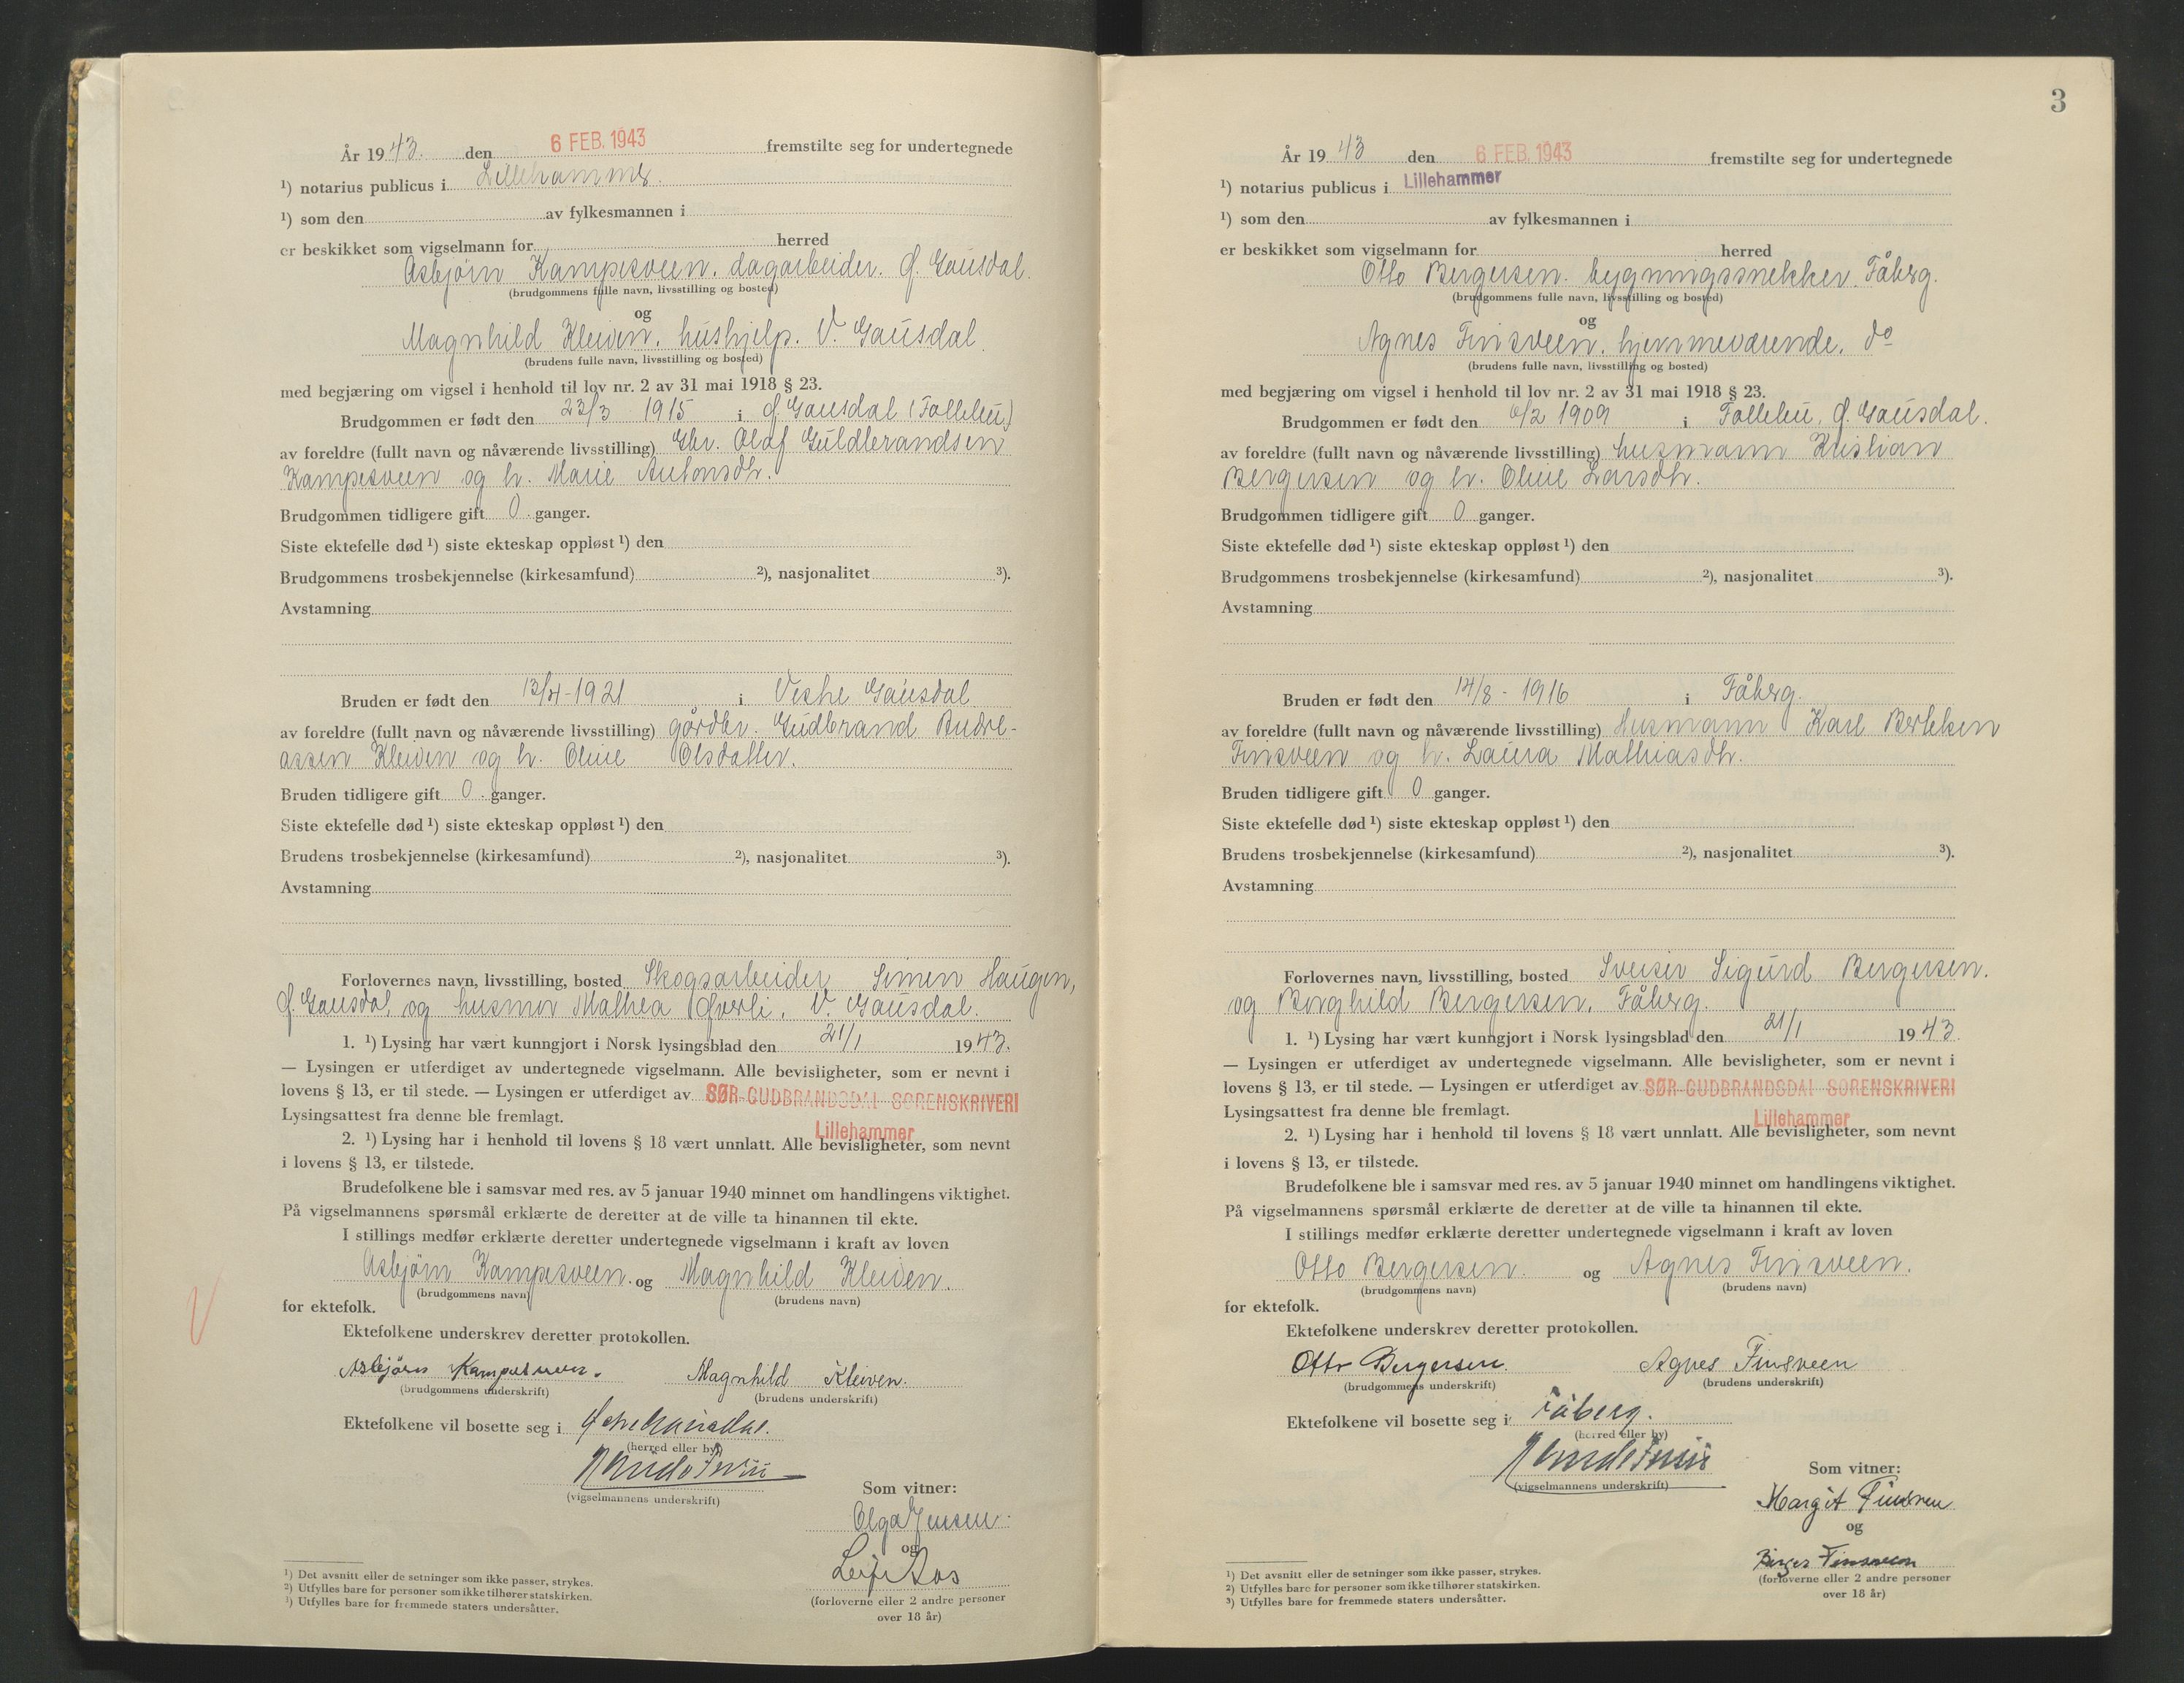 År 1943. den 6 FEB. 1943 fremstilte seg for undertegnede
¹) notarius publicus i Lillehammer.
¹) som den av fylkesmannen i
er beskikket som vigselmann for herred
Asbjörn Kampesveen, dagarbeider. Ø. Gausdal.
(brudgommens fulle navn, livsstilling og bosted)
og
Magnhild Kleiven, hushjelp. V. Gausdal.
(brudens fulle navn, livsstilling og bosted)
med begjæring om vigsel i henhold til lov nr. 2 av 31 mai 1918 § 23.
Brudgommen er født den 23/3 1915 i Ø. Gausdal (Follebu)
av foreldre (fullt navn og nåværende livsstilling) Gbr. Olaf Guldbrandsen
Kampesveen og h. Marie Antonsdtr.
Brudgommen tidligere gift 0. ganger.
Siste ektefelle død ¹) siste ekteskap oppløst ¹) den
Brudgommens trosbekjennelse (kirkesamfund) ²), nasjonalitet ³).
Avstamning
Bruden er født den 13/4-1921 i Vestre Gausdal
av foreldre (fullt navn og nåværende livsstilling) gårdbr. Gudbrand Andre-
assen Kleiven og h. Oline Olsdatter.
Bruden tidligere gift 0. ganger.
Siste ektefelle død ¹) siste ekteskap oppløst ¹) den
Brudens trosbekjennelse (kirkesamfund) ²), nasjonalitet ³).
Avstamning
Forlovernes navn, livsstilling, bosted Skogsarbeider Simen Haugen,
Ø. Gausdal, og husmor Mathea Øverli, V. Gausdal.
1. ¹) Lysing har vært kunngjort i Norsk lysingsblad den 21/1 1943.
— Lysingen er utferdiget av undertegnede vigselmann. Alle bevisligheter, som er nevnt i
lovens § 13, er til stede. — Lysingen er utferdiget av SØR-GUDBRANDSDAL SORENSKRIVERI
Lysingsattest fra denne ble fremlagt.
Lillehammer
2. ¹) Lysing har i henhold til lovens § 18 vært unnlatt. Alle bevisligheter, som nevnt
i lovens § 13, er tilstede.
Brudefolkene ble i samsvar med res. av 5 januar 1940 minnet om handlingens viktighet.
På vigselmannens spørsmål erklærte de deretter at de ville ta hinannen til ekte.
I stillings medfør erklærte deretter undertegnede vigselmann i kraft av loven
Asbjörn Kampesveen. og Magnhild Kleiven.
(brudgommens navn) (brudens navn)
for ektefolk.
Ektefolkene underskrev deretter protokollen.
Asbjörn Kampesveen. Magnhild Kleiven.
(brudgommens underskrift) (brudens underskrift)
Ektefolkene vil bosette seg i Østre Gausdal.
(herred eller by)
(vigselmannens underskrift)
Som vitner:
Olga Jensen
og
Leif Aas
(forloverne eller 2 andre personer
over 18 år)
¹) Det avsnitt eller de setninger som ikke passer, strykes.
²) Utfylles bare for personer som ikke tilhører statskirken.
³) Utfylles bare for fremmede staters undersåtter.
3
År 1943 den 6 FEB. 1943 fremstilte seg for undertegnede
¹) notarius publicus i Lillehammer
¹) som den av fylkesmannen i
er beskikket som vigselmann for herred
Otto Bergersen. bygningssnekker. Fåberg.
(brudgommens fulle navn, livsstilling og bosted)
og
Agnes Finsveen, hjemmeværende, do
(brudens fulle navn, livsstilling og bosted)
med begjæring om vigsel i henhold til lov nr. 2 av 31 mai 1918 § 23.
Brudgommen er født den 6/2 1909 i Follebu, Ø. Gausdal.
av foreldre (fullt navn og nåværende livsstilling) husmann Kristian
Bergersen og h. Oline Larsdtr.
Brudgommen tidligere gift 0 ganger.
Siste ektefelle død ¹) siste ekteskap oppløst ¹) den
Brudgommens trosbekjennelse (kirkesamfund) ²), nasjonalitet ³).
Avstamning
Bruden er født den 14/8 - 1916 i Fåberg.
av foreldre (fullt navn og nåværende livsstilling) Husmann Karl Bertelsen
Finsveen og h. Laura Mathiasdtr.
Bruden tidligere gift 0 ganger.
Siste ektefelle død ¹) siste ekteskap oppløst ¹) den
Brudens trosbekjennelse (kirkesamfund) ²), nasjonalitet ³).
Avstamning
Forlovernes navn, livsstilling, bosted Sveiser Sigurd Bergersen.
og Borghild Bergersen, Fåberg.
1. ¹) Lysing har vært kunngjort i Norsk lysingsblad den 21/1 1943
— Lysingen er utferdiget av undertegnede vigselmann. Alle bevisligheter, som er nevnt i
lovens § 13, er til stede. — Lysingen er utferdiget av SØR-GUDBRANDSDAL SORENSKRIVERI
Lysingsattest fra denne ble fremlagt.
Lillehammer
2. ¹) Lysing har i henhold til lovens § 18 vært unnlatt. Alle bevisligheter, som nevnt
i lovens § 13, er tilstede.
Brudefolkene ble i samsvar med res. av 5 januar 1940 minnet om handlingens viktighet.
På vigselmannens spørsmål erklærte de deretter at de ville ta hinannen til ekte.
I stillings medfør erklærte deretter undertegnede vigselmann i kraft av loven
Otto Bergersen. og Agnes Finsveen.
(brudgommens navn) (brudens navn)
for ektefolk.
Ektefolkene underskrev deretter protokollen.
Otto Bergersen. Agnes Finsveen
(brudgommens underskrift) (brudens underskrift)
Ektefolkene vil bosette seg i Fåberg.
(herred eller by)
(vigselmannens underskrift)
Som vitner:
Margit Finsveen
og
Birger Finsveen
(forloverne eller 2 andre personer
over 18 år)
¹) Det avsnitt eller de setninger som ikke passer, strykes.
²) Utfylles bare for personer som ikke tilhører statskirken.
³) Utfylles bare for fremmede staters undersåtter.